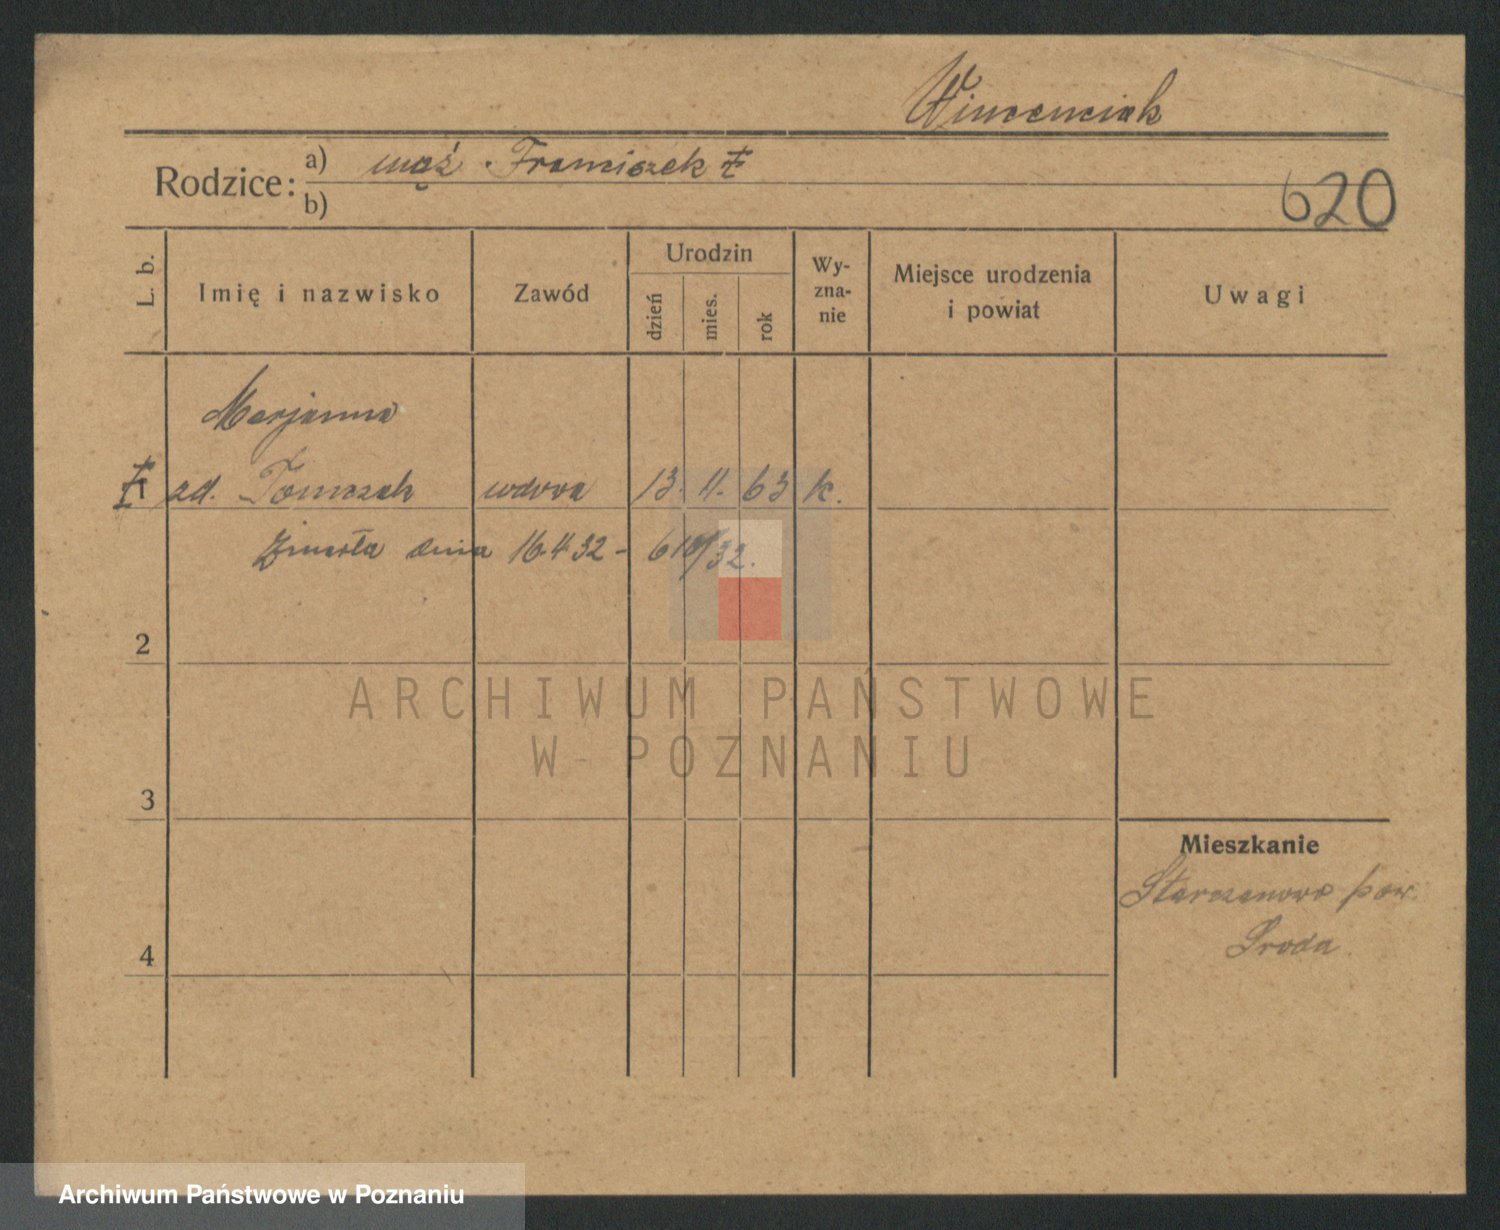 Wincenciak
Rodzice: a) mąż Franciszek ‡
b)
620
L. b.
Imię i nazwisko
Zawód
Urodzin
dzień
mies.
rok
Wy-
zna-
nie
Miejsce urodzenia
i powiat
Uwagi
Marjanna
‡ 1 zd. Tomczak wdowa 13. 11. 63 k.
Zmarła dnia 16.4.32 -
2
ARCHIWUM PAŃSTWOWE
W POZNANIU
3
Mieszkanie
Starczanowo pow.
Środa
4
Archiwum Państwowe w Poznaniu